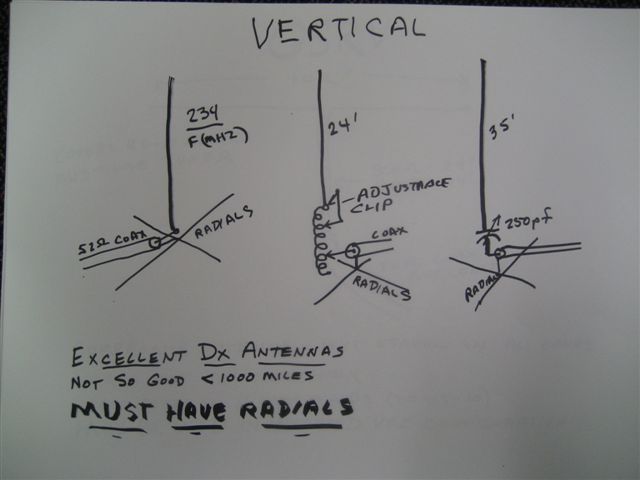 VERTICAL
234
F(MHZ)
52Ω COAX
RADIALS
24'
ADJUSTABLE
CLIP
COAX
RADIALS
35'
250pf
RADIALS
EXCELLENT DX ANTENNAS
NOT SO GOOD < 1000 MILES
MUST HAVE RADIALS